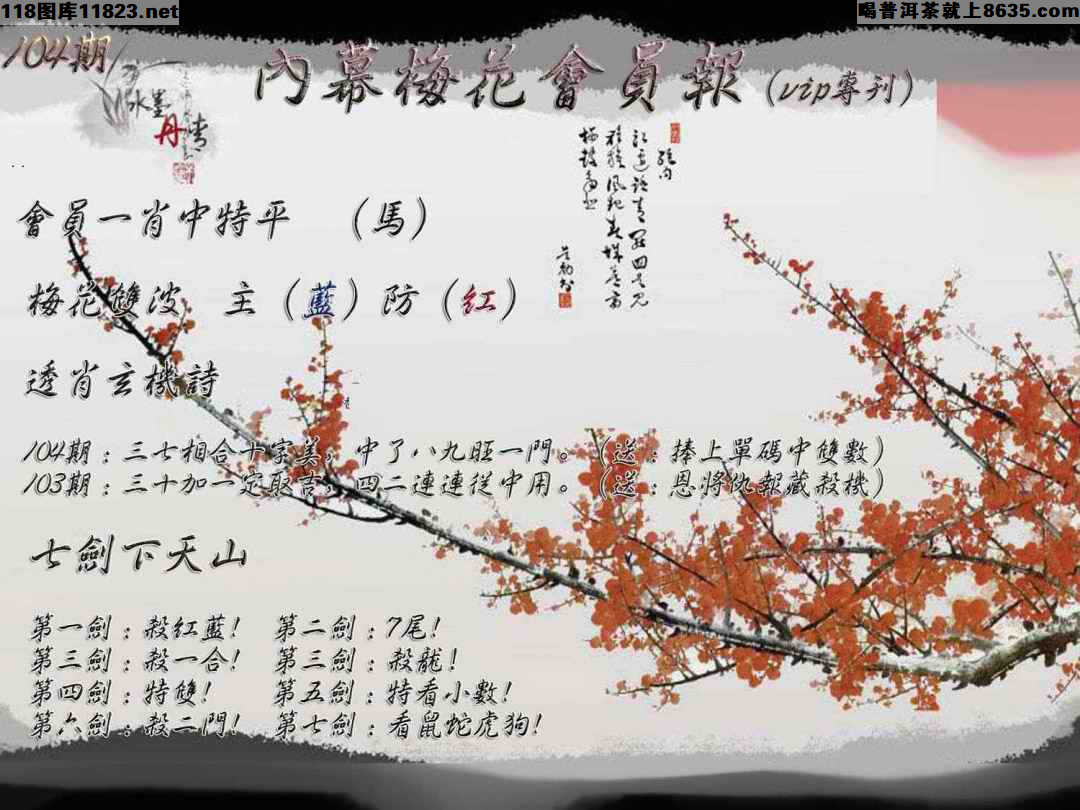 118图库11823.net
喝普洱茶就上8635.com
104期
內幕梅花會員報(vip專刊)
水墨
丹青
會員一肖中特平 (馬)
梅花雙波 主(藍)防(紅)
透肖玄機詩
104期:三七相合十字美,中了八九旺一門。(送:捧上單碼中雙數)
103期:三十加一定取吉,四二連連從中用。(送:恩將仇報藏殺機)
七劍下天山
第一劍:殺紅藍! 第二劍:7尾!
第三劍:殺一合! 第三劍:殺龍!
第四劍:特雙! 第五劍:特看小數!
第六劍:殺二門! 第七劍:看鼠蛇虎狗!